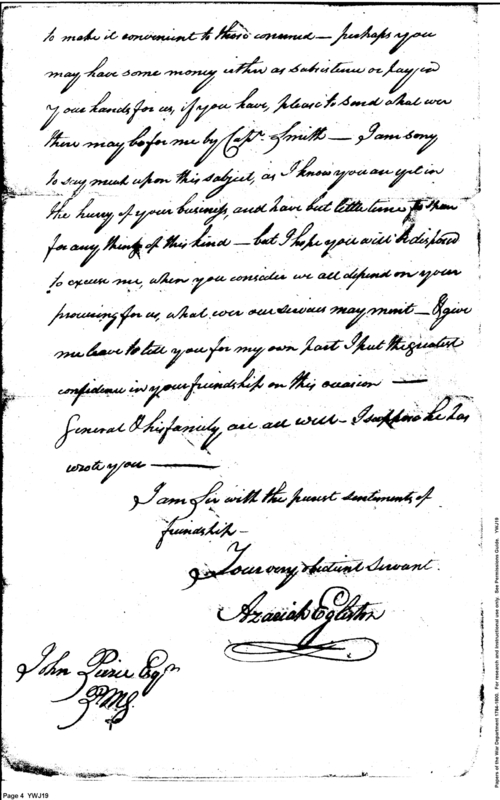 to make it convenient to those concerned — perhaps you
may have some money either as subsistence or pay in
your hands for us, if you have, please to send what ever
there may be for me by Capt. Smith — I am sorry
to say much upon this subject, as I know you are yet in
the hurry of your business, and have but little time to spare
for any thing of this kind — but I hope you will be disposed
to excuse me, when you consider we all depend on your
procuring for us, what ever our services may merit — & give
me leave to tell you for my own part I put the greatest
confidence in your friendship on this occasion —
General & his family are all well — I suppose he has
wrote you —
I am Sir with the purest sentiments of
friendship —
Your very obedient Servant.
Azariah Egleston
John Pierce Esqr
PMG
Page 4 YWJ19
Papers of the War Department 1784-1800. For research and instructional use only. See Permissions Guide. YWJ19